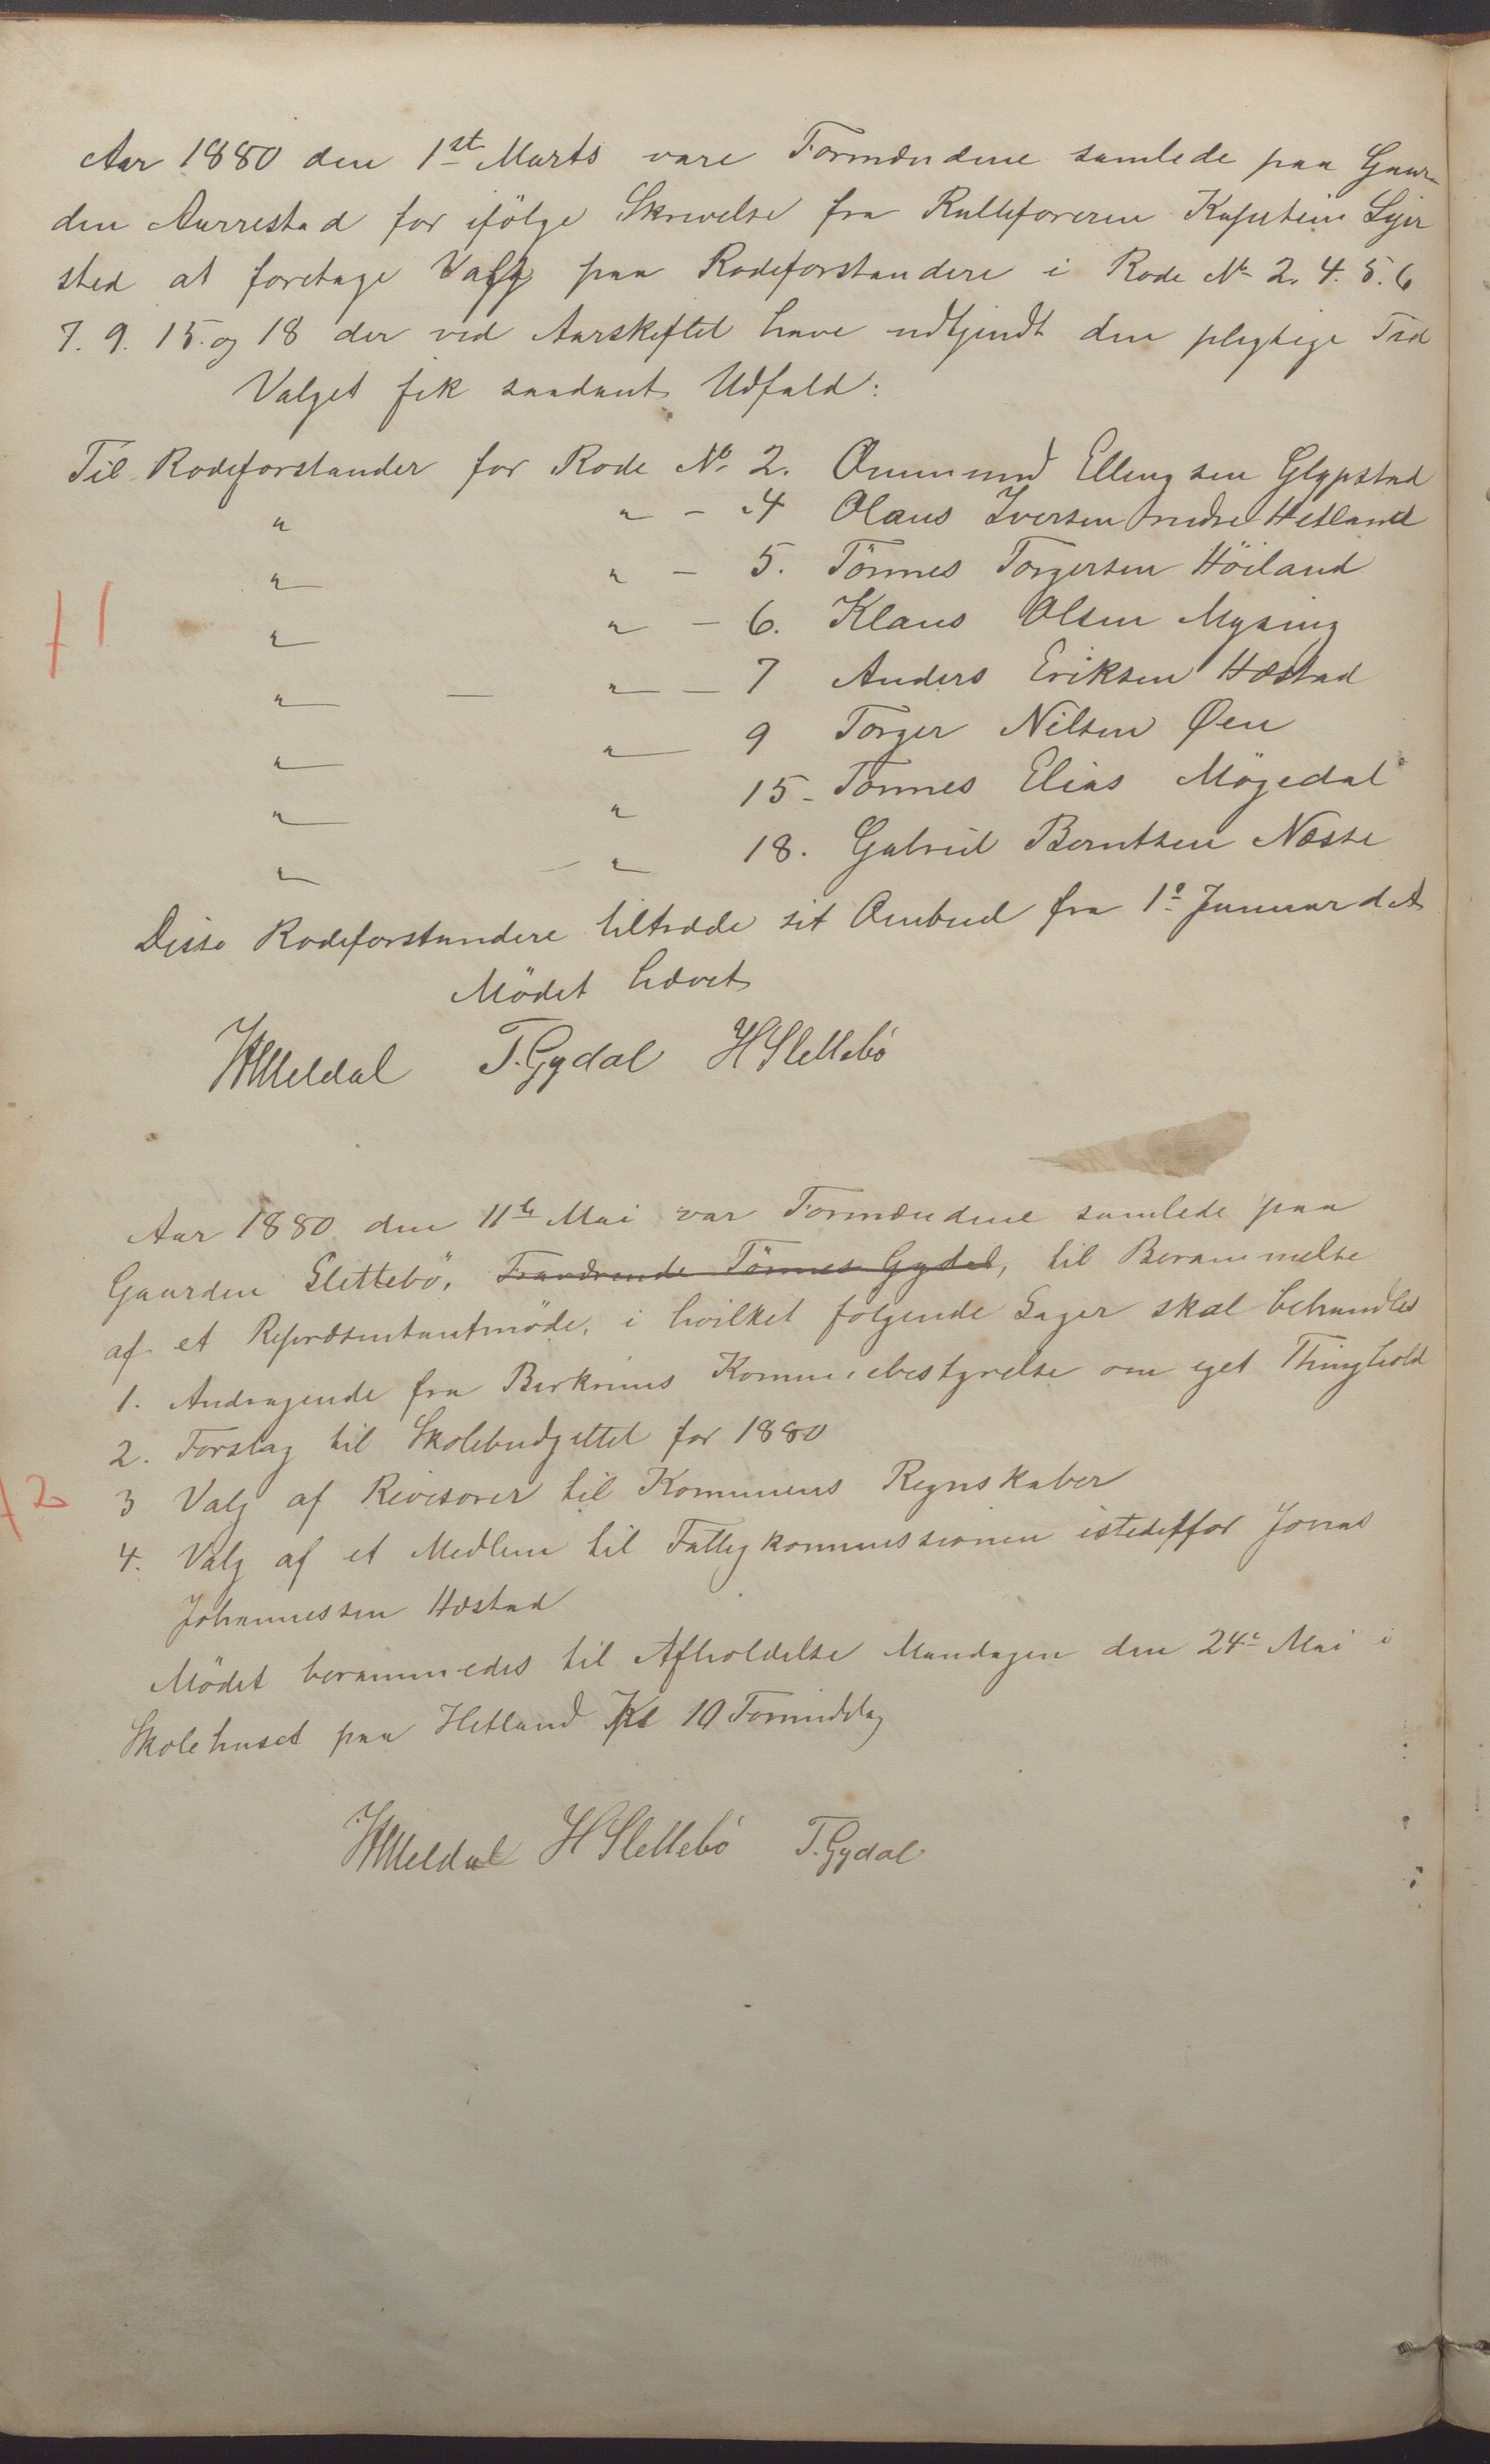 Aar 1880 den 1st Marts vare Formændene samlede paa Gaar-
den Aarrestad for ifölge Skrivelse fra Rulleföreren Kaptein Lyer
sted at foretage Valg paa Rodeforstandere i Rode No 2. 4. 5. 6
7. 9. 15. og 18 der ved Aarskiftet have udtjendt den pligtige Tid
Valget fik saadant Udfald:
Til Rodeforstander for Rode No 2. Ommund Ellingsen Glypstad
" " - " 4 Olaus Iversen nedre Hetland
" " - 5. Tönnes Torgersen Höiland
" " - 6. Klaus Olsen Mysing
" — " - 7 Anders Eriksen Hæstad
" " 9 Torger Nilsen Øen
" " 15 - Tönnes Elias Mögedal
" - " 18. Gabriel Berntsen Næsse
Disse Rodeforstandere tiltræde sit Ombud fra 1e Januar d.A
Mödet hævet
HMeldal T. Gydal H Slettebö
Aar 1880 den 11te Mai var Formændene samlede paa
Gaarden Slettebö, Fraværende Tönnes Gydal, til Berammelse
af et Repræsentantmöde, i hvilket fölgende Sager skal behandles
1. Andragende fra Birkrims Kommunebestyrelse om eget Thinghold
2. Forslag til Skolebudgettet for 1880
3 Valg af Revisorer til Kommunens Regnskaber
4. Valg af et Medlem til Fattigkommissionen istedetfor Jonas
Johannessen Hæstad
Mödet berammedes til Afholdelse Mandagen den 24e Mai i
Skolehuset paa Hetland Kl 10 Formiddag
HMeldal H Slettebö T. Gydal